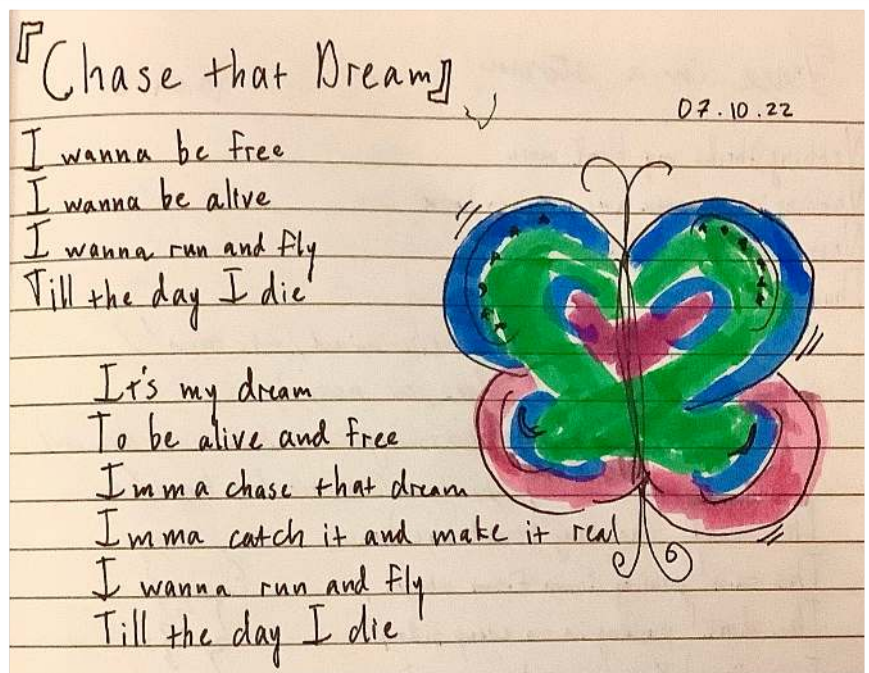 『Chase that Dream』
07.10.22
I wanna be free
I wanna be alive
I wanna run and fly
Till the day I die
It's my dream
To be alive and free
Imma chase that dream
Imma catch it and make it real
I wanna run and fly
Till the day I die